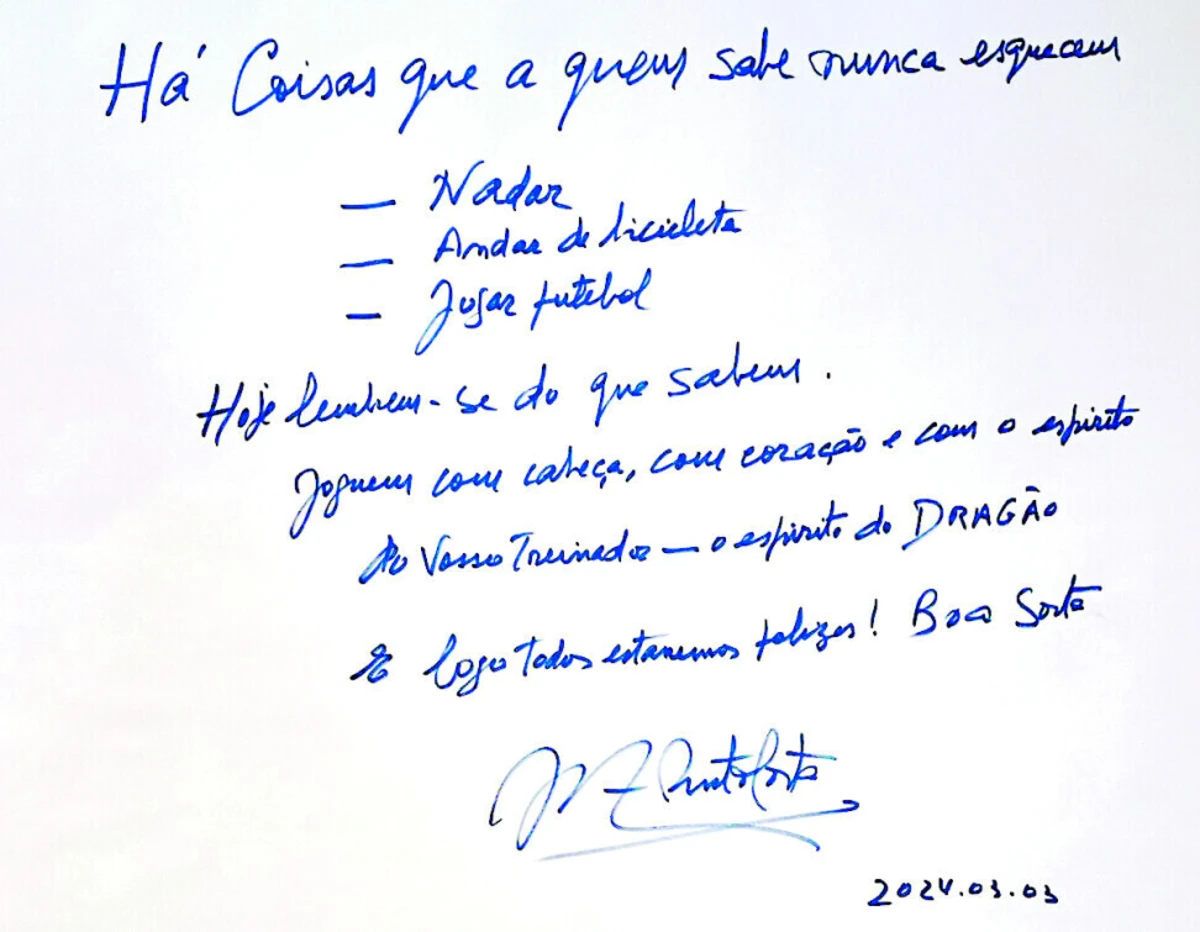 Há Coisas que a quem sabe nunca esquecem
— Nadar
— Andar de bicicleta
— Jogar futebol
Hoje lembrem-se do que sabem.
Joguem com cabeça, com coração e com o espirito
do Vosso Treinador — o espirito do DRAGÃO
E logo todos estaremos felizes! Boa Sorte
Pinto Costa
2024.03.03